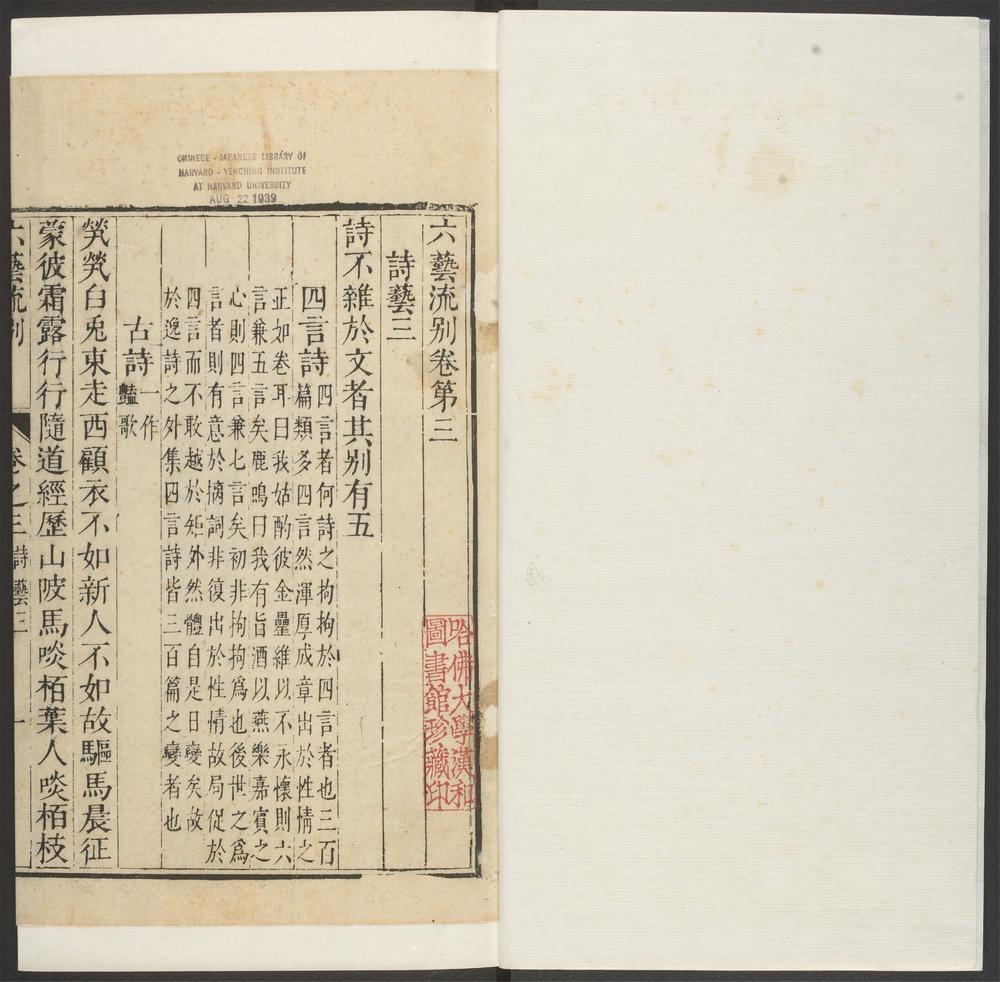 CHINESE - JAPANESE LIBRARY OF
HARVARD - YENCHING INSTITUTE
AT HARVARD UNIVERSITY
AUG 22 1939
六藝流别卷第三
哈佛大學漢和
圖書館珍藏印
詩藝三
詩不雜於文者其别有五
四言詩
四言者何詩之拘拘於四言者也三百
篇類多四言然渾厚成章出於性情之
正如卷耳曰我姑酌彼金罍維以不永懷則六
言兼五言矣鹿鳴曰我有旨酒以燕樂嘉賓之
心則四言兼七言矣初非拘拘爲也後世之爲
言者則有意於摛詞非復出於性情故局促於
四言而不敢越於矩外然體自是日變矣故
於逸詩之外集四言詩皆三百篇之變者也
古詩
一作
豔歌
煢煢白兎東走西顧衣不如新人不如故驅馬晨征
蒙彼霜露行行隨道經歷山陂馬啖栢葉人啖栢枝
六藝流别
卷之三
詩藝三
一